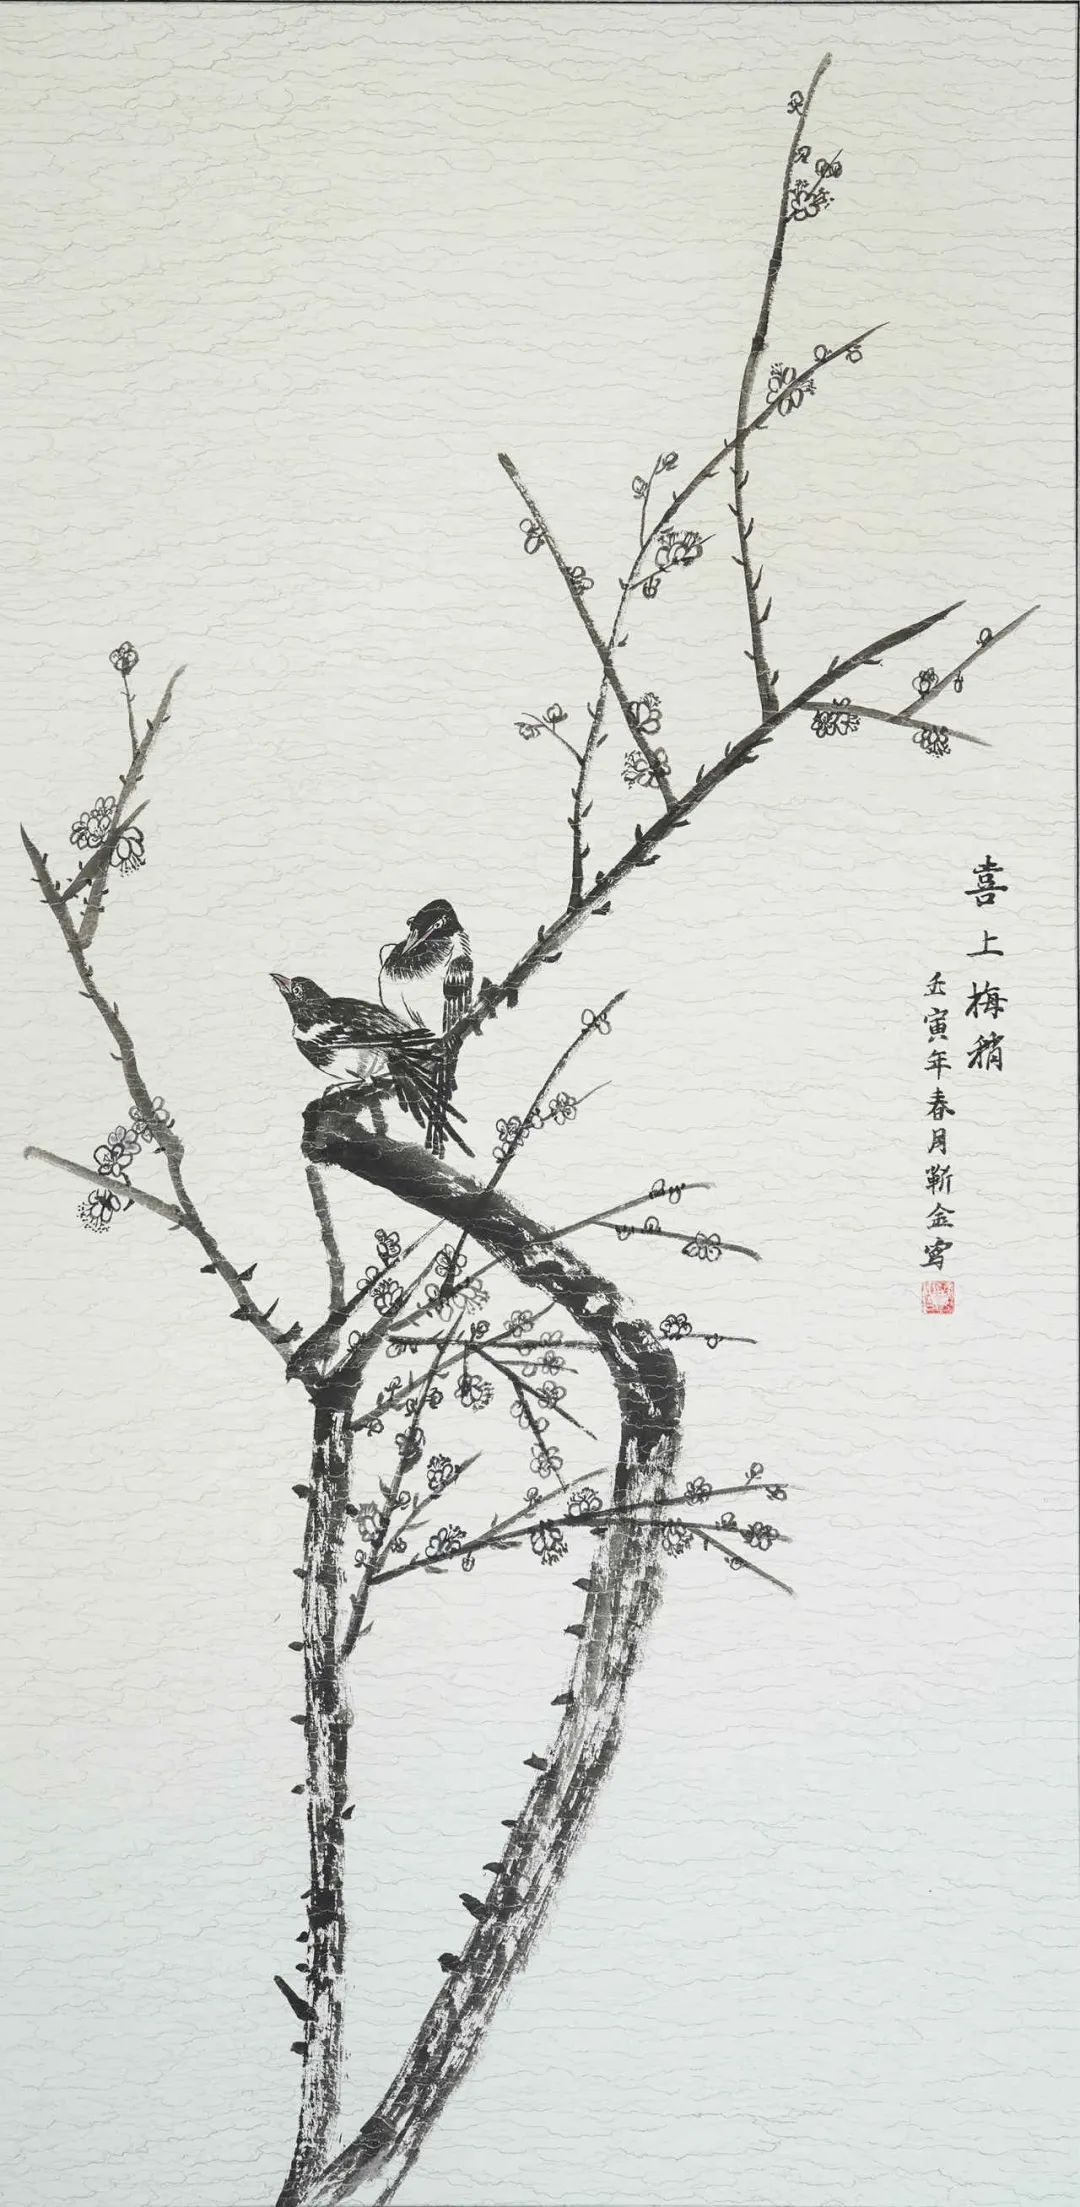 喜上梅稍
壬寅年春月靳金写